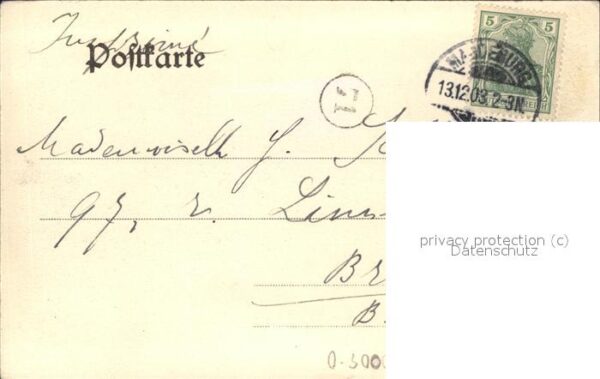 Imprimé
Postkarte
5
MAGDEBURG
13.12.03. 2-3N.
71
Mademoiselle J.
97, r.
Br
B.
privacy protection (c)
Datenschutz